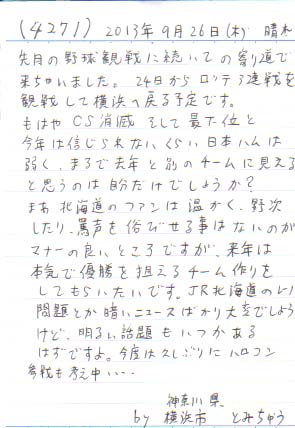 (4271) 2013年9月26日(木) 晴れ
先月の野球観戦に続いての寄り道で
来ちゃいました。 24日からロッテ3連戦を
観戦して横浜へ戻る予定です。
もはやCS消滅 そして最下位と
今年は信じられないくらい日本ハムは
弱く、まるで去年と別のチームに見える
と思うのは自分だけでしょうか?
まあ北海道のファンは温かく、野次
したり、罵声を浴びせる事はないのが
マナーの良いところですが、来年は
本気で優勝を狙えるチーム作りを
してもらいたいです。JR北海道のレール
問題とか暗いニュースばかり大変でしょう
けど、明るい話題もいつかある
はずですよ。今度は久しぶりにハロコン
参戦も考え中‥‥
神奈川県
by 横浜市 とみちゅう